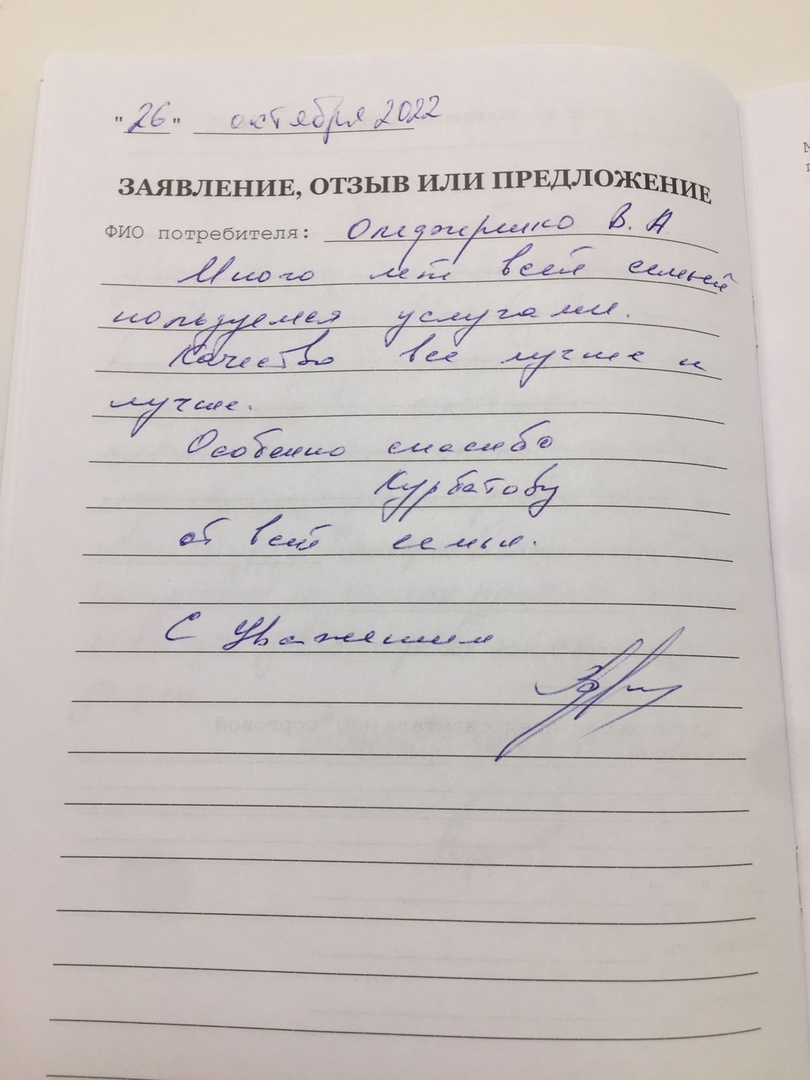 "26" октября 2022
ЗАЯВЛЕНИЕ, ОТЗЫВ ИЛИ ПРЕДЛОЖЕНИЕ
ФИО потребителя: В. А
Много лет всей семьей
пользуемся услугами.
Качество все лучше и
лучше.
Особенно спасибо
Курбатову
от всей семьи.
С Уважением